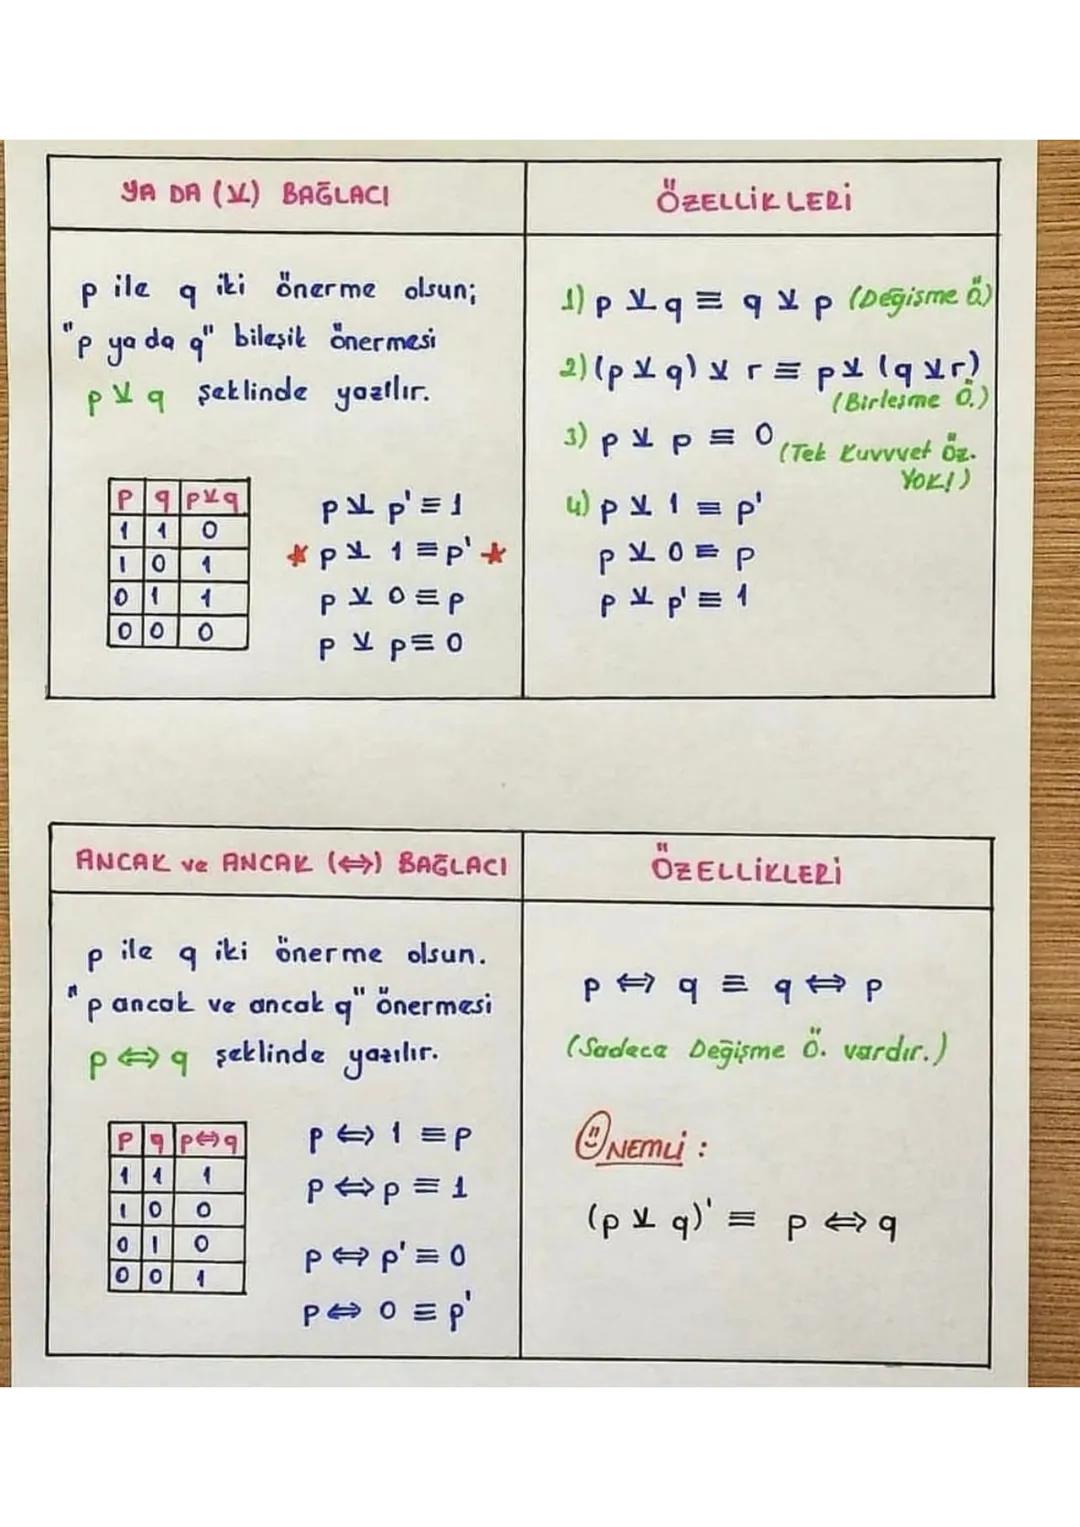 YA DA (⊻) BAĞLACI
p ile q iki önerme olsun;
"p ya da q" bileşik önermesi
p ⊻ q şeklinde yazılır.
p q p⊻q
1 1 0
1 0 1
0 1 1
0 0 0
p ⊻ p' ≡ 1
* p ⊻ 1 ≡ p' *
p ⊻ 0 ≡ p
p ⊻ p ≡ 0
ÖZELLİKLERİ
1) p ⊻ q ≡ q ⊻ p (Değişme Ö.)
2) (p ⊻ q) ⊻ r ≡ p ⊻ (q ⊻ r)
(Birleşme Ö.)
3) p ⊻ p ≡ 0 (Tek Kuvvvet Öz.
YOK!)
4) p ⊻ 1 ≡ p'
p ⊻ 0 ≡ p
p ⊻ p' ≡ 1
ANCAK ve ANCAK (⇔) BAĞLACI
p ile q iki önerme olsun.
"p ancak ve ancak q" önermesi
p ⇔ q şeklinde yazılır.
p q p⇔q
1 1 1
1 0 0
0 1 0
0 0 1
p ⇔ 1 ≡ p
p ⇔ p ≡ 1
p ⇔ p' ≡ 0
p ⇔ 0 ≡ p'
ÖZELLİKLERİ
p ⇔ q ≡ q ⇔ p
(Sadece Değişme Ö. vardır.)
ÖNEMLİ :
(p ⊻ q)' ≡ p ⇔ q